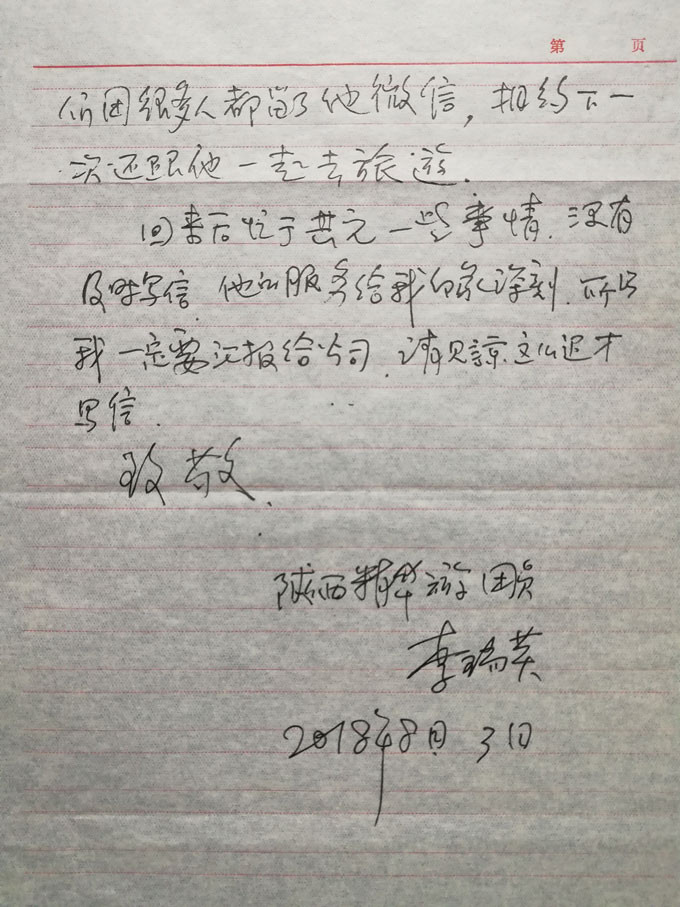 第 页
们团很多人都留了他微信，相约下一
次还跟他一起去旅游.
回来后忙于其它一些事情.没有
及时写信.他的服务给我印象深刻.所以
我一定要汇报给公司.请见諒这么迟才
写信.
致敬.
陕西精华游团员
李瑞英
2018年8月3日